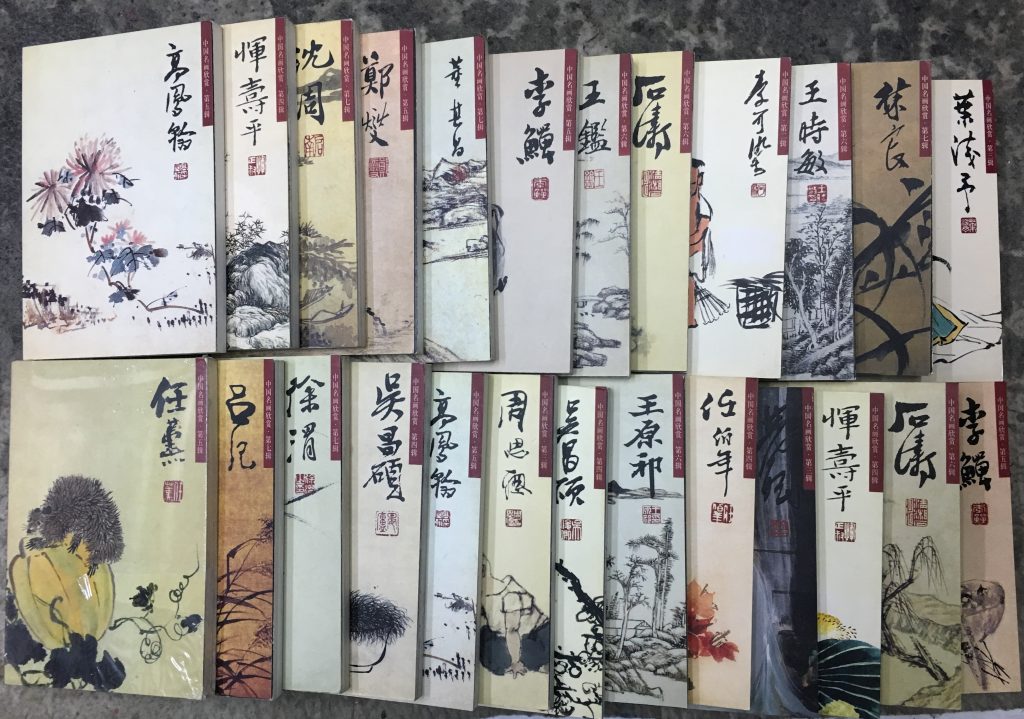 高鳳翰
中国名画欣赏·第五辑
惲壽平
中国名画欣赏·第四辑
沈周
中国名画欣赏·第七辑
鄭燮
中国名画欣赏·第五辑
董其昌
中国名画欣赏·第七辑
李鱓
中国名画欣赏·第五辑
王鑑
中国名画欣赏·第六辑
石濤
中国名画欣赏·第六辑
李可染
中国名画欣赏·第二辑
王時敏
中国名画欣赏·第六辑
林良
中国名画欣赏·第七辑
葉淺予
中国名画欣赏·第三辑
任薰
中国名画欣赏·第五辑
吕纪
中国名画欣赏·第七辑
徐渭
中国名画欣赏·第七辑
吳昌碩
中国名画欣赏·第四辑
高鳳翰
中国名画欣赏·第五辑
周思聰
中国名画欣赏·第三辑
吳昌碩
中国名画欣赏·第四辑
王原祁
中国名画欣赏·第六辑
任伯年
中国名画欣赏·第四辑
中国名画欣赏·第三辑
惲壽平
中国名画欣赏·第四辑
石濤
中国名画欣赏·第六辑
李鱓
中国名画欣赏·第五辑